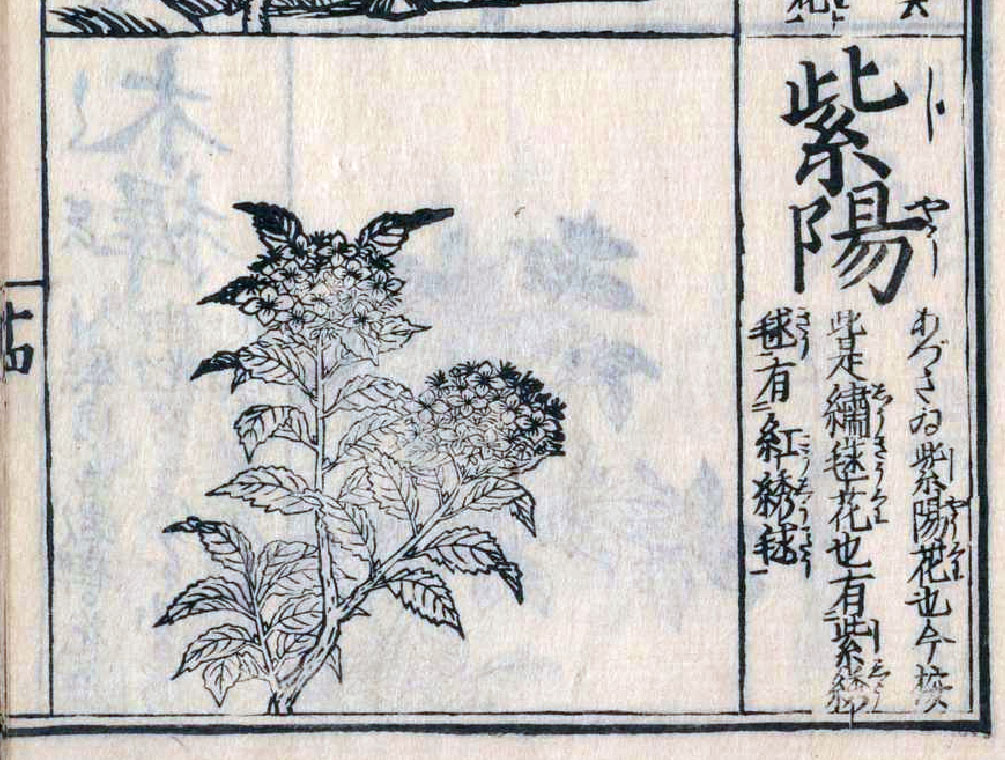 紫陽
じ
やう
あづさゐ紫陽花也今按
此是繡毬花也有紫繡
毬有紅綉毬